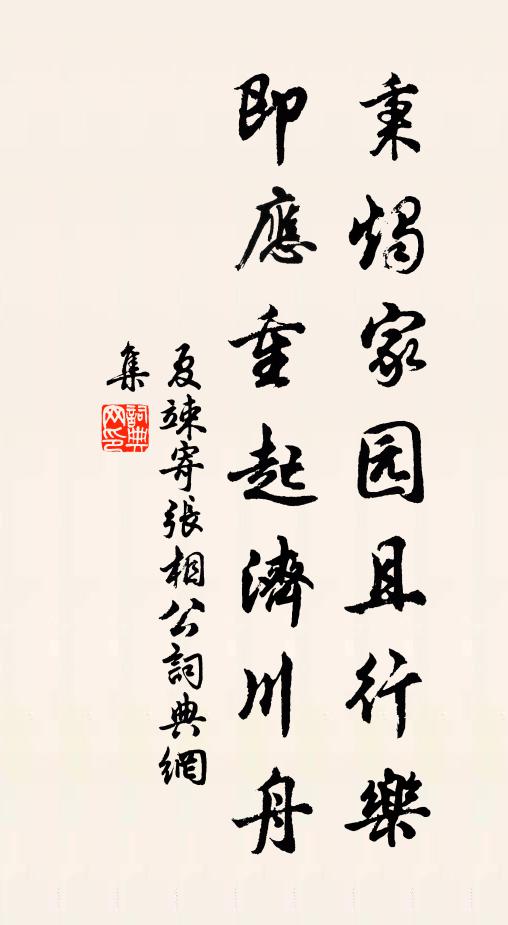 秉燭家园且行樂
即應重起濟川舟
夏竦寄張相公詞典網
集
詞典
网印